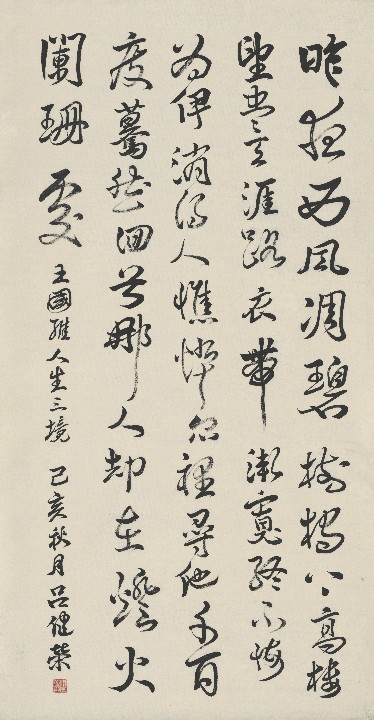 昨夜西風凋碧樹獨上高樓
望盡天涯路衣帶漸寬終不悔
為伊消得人憔悴眾裡尋他千百
度驀然回首那人却在燈火
闌珊處
王國維人生三境 己亥秋月呂健榮